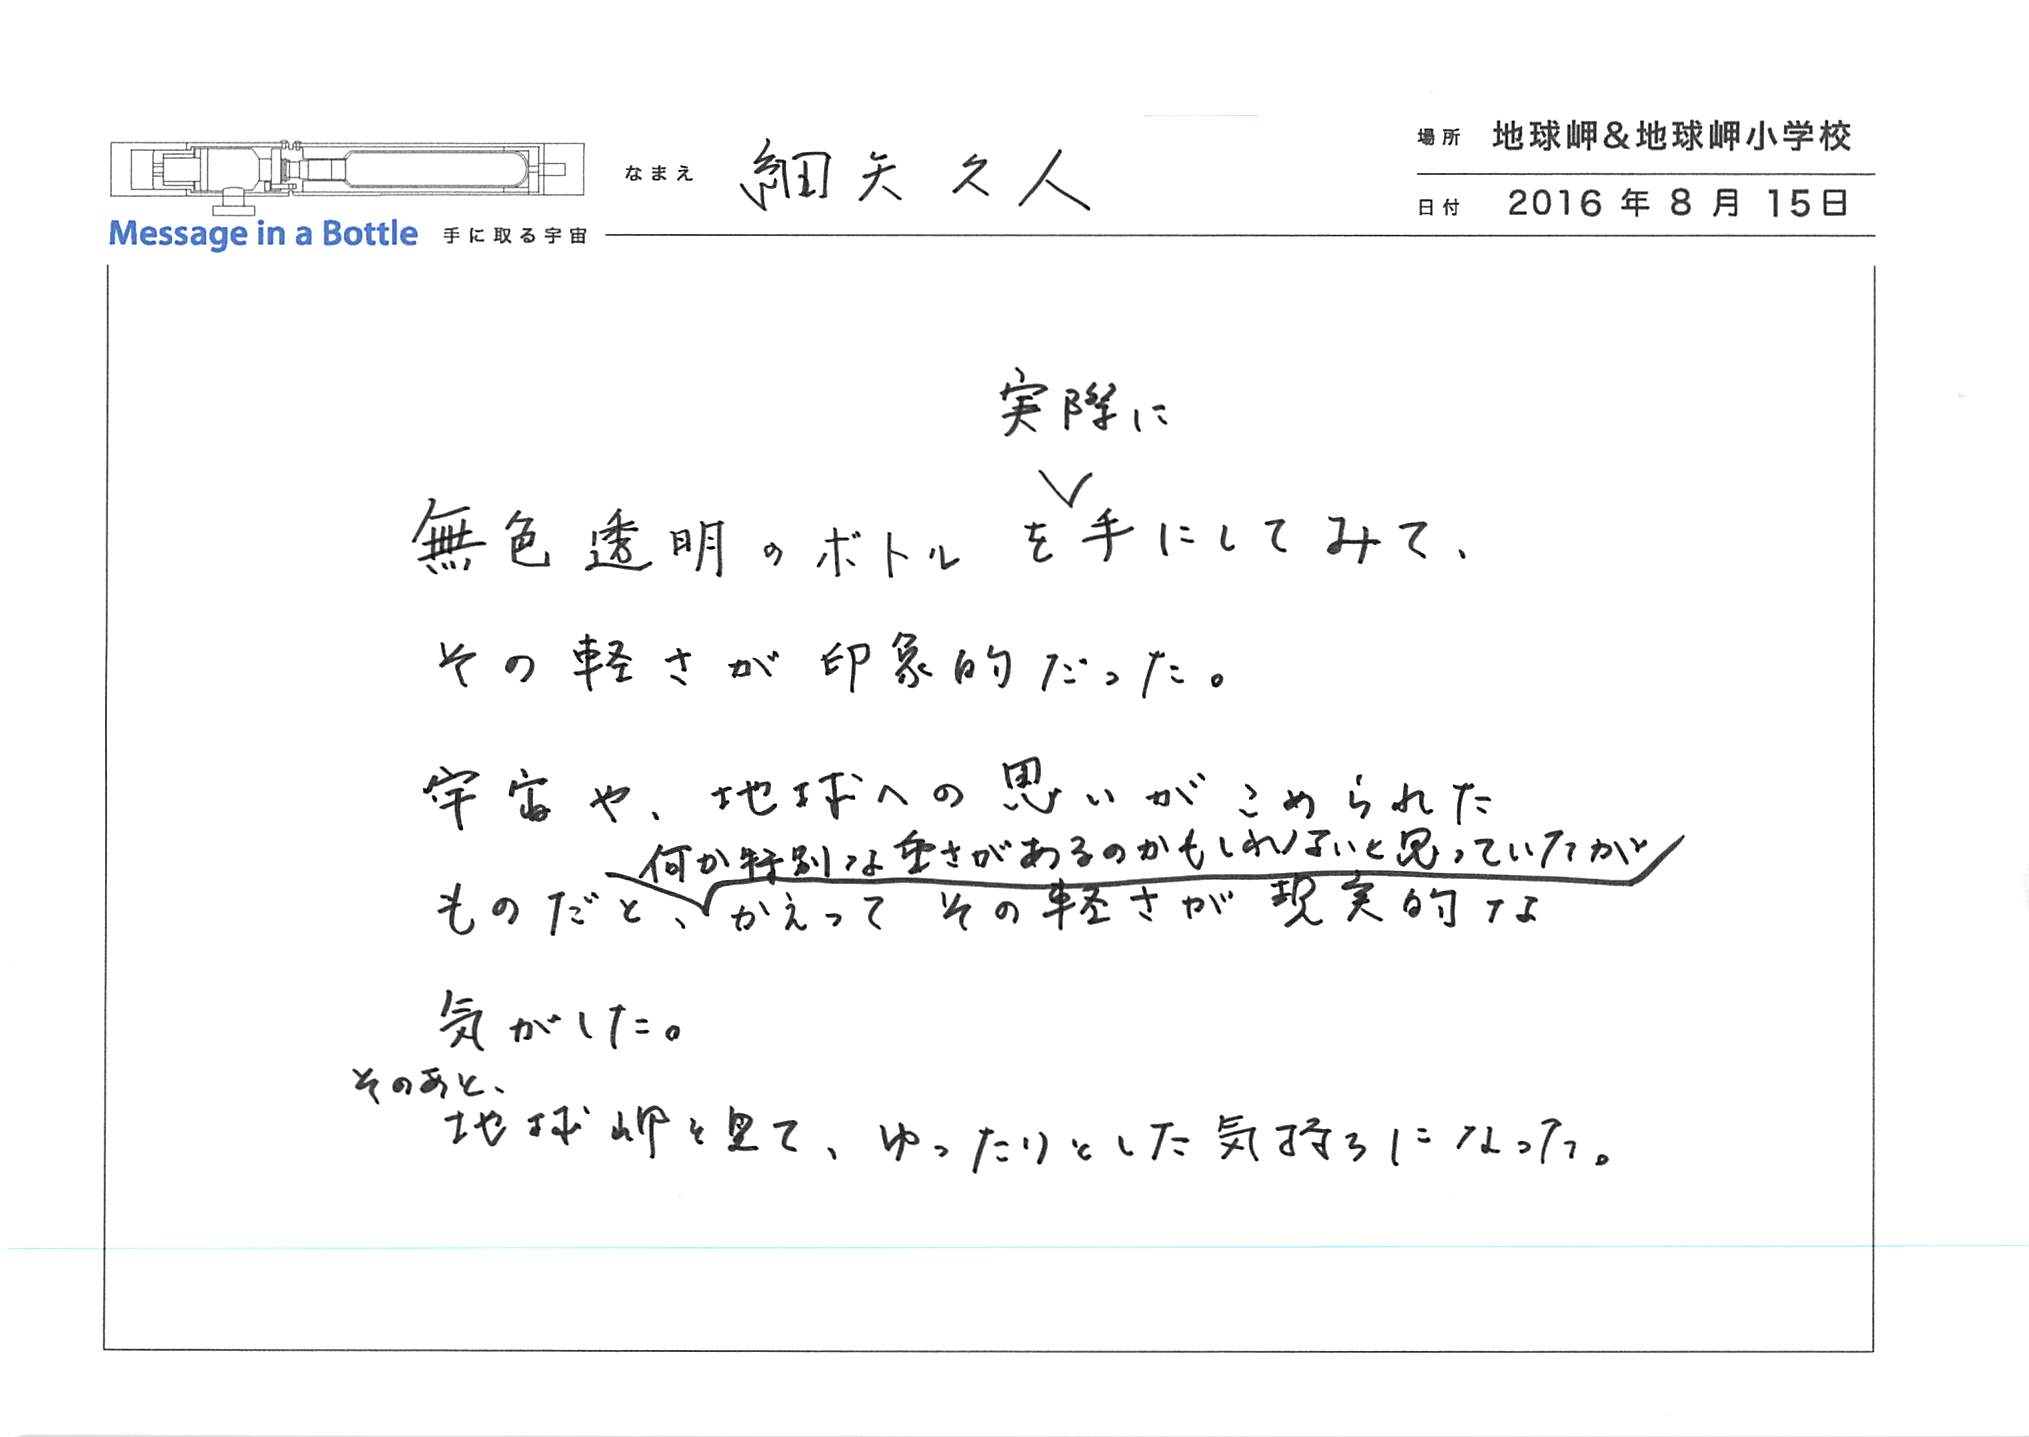 場所 地球岬&地球岬小学校
なまえ 細矢久人
日付 2016年8月15日
Message in a Bottle 手に取る宇宙
実際に
無色透明のボトルを手にしてみて、
その軽さが印象的だった。
宇宙や、地球への思いがこめられた
何か特別な重さがあるのかもしれないと思っていたが
ものだと、かえってその軽さが現実的な
気がした。
そのあと、
地球岬を見て、ゆったりとした気持ちになった。